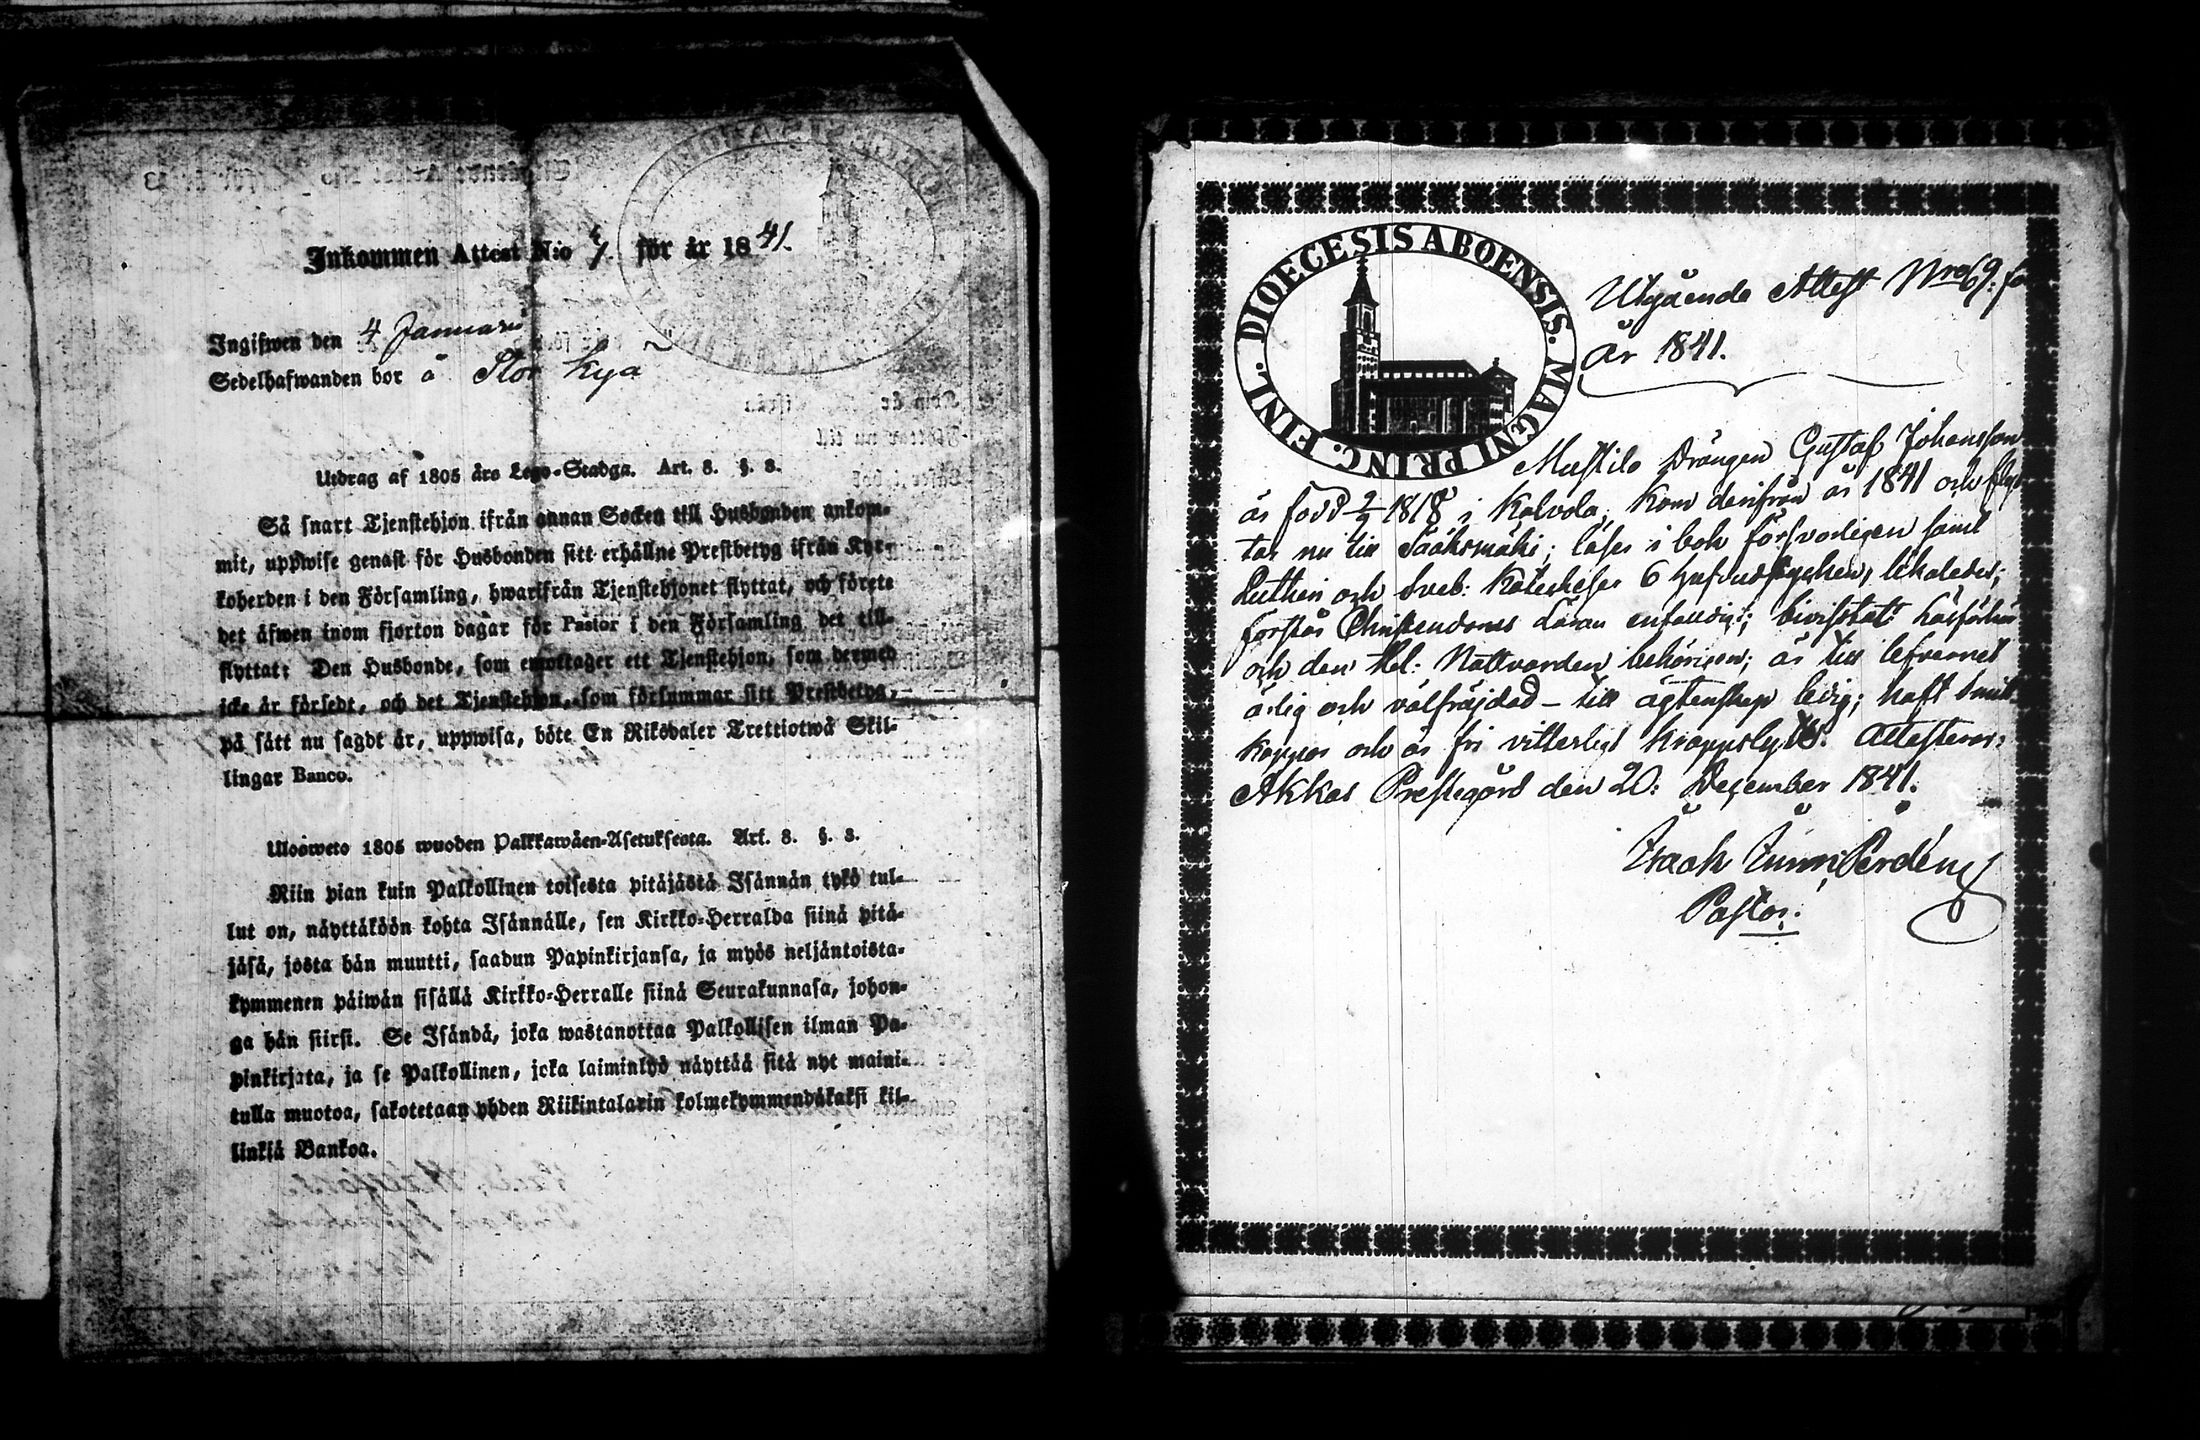 Inkommen Attest N:o 4/. för år 1841.
Ingifwen den 4 Januari
Sedelhafwanden bor å Stor Kyä
Utdrag af 1805 års Lego-Stadga. Art. 8. §. 8.
Så snart Tjenstehjon ifrån annan Socken till Husbonden ankom-
mit, uppwise genast för Husbonden sitt erhållne Prestbetyg ifrån Kyr-
koherden i den Församling, hwarifrån Tjenstehjonet flyttat, och förete
det äfwen inom fjorton dagar för Pastor i den Församling det till-
flyttat: Den Husbonde, som emottager ett Tjenstehjon, som dermed
icke är försedt, och det Tjenstehjon, som försummar sitt Prestbetyg,
på sätt nu sagdt är, uppwisa, böte En Riksdaler Trettiotwå Skil-
lingar Banco.
Ulosweto 1805 wuoden Palkkawäen-Asetuksesta. Art. 8. §. 8.
Niin pian kuin Palkollinen toisesta pitäjästä Isännän tykö tul-
lut on, näyttäköön kohta Isännälle, sen Kirkko-Herralda siinä pitä-
jäsä, josta hän muutti, saadun Papinkirjansa, ja myös neljäntoista-
kymmenen päiwän sisällä Kirkko-Herralle siinä Seurakunnasa, johon-
ga hän siirsi. Se Isändä, joka wastanottaa Palkollisen ilman Pa-
pinkirjata, ja se Palkollinen, joka laiminlyö näyttää sitä nyt maini-
tulla muotoa, sakotetaan yhden Riikintalarin kolmekymmendäkaksi kil-
linkiä Bankoa.
DIOECESIS ABOENSIS. MAGNI PRINC. FINL.
Utgående Attest Nro 69. fö
År 1841.
Mustila Drängen Gustaf Johansson
är född 9/9 1818 i Kalvola, kom derifrån år 1841 och flyt
tar nu till Sääksmäki; läser i bok försvarligen samt
Luthers och Sveb: Kateches 6 hufvudstycken, likaledes;
förstår Christendoms läran enfaldigt; bivistat läsförhör
och den Hel: Nattvarden behörigen; är till lefvernet
ärlig och välfräjdad – till ägtenskap ledig; haft smitt
koppor och är fri vitterligt kroppslyte. Attesterar:
Akkas Prestegård den 20: December 1841.
Pastor.